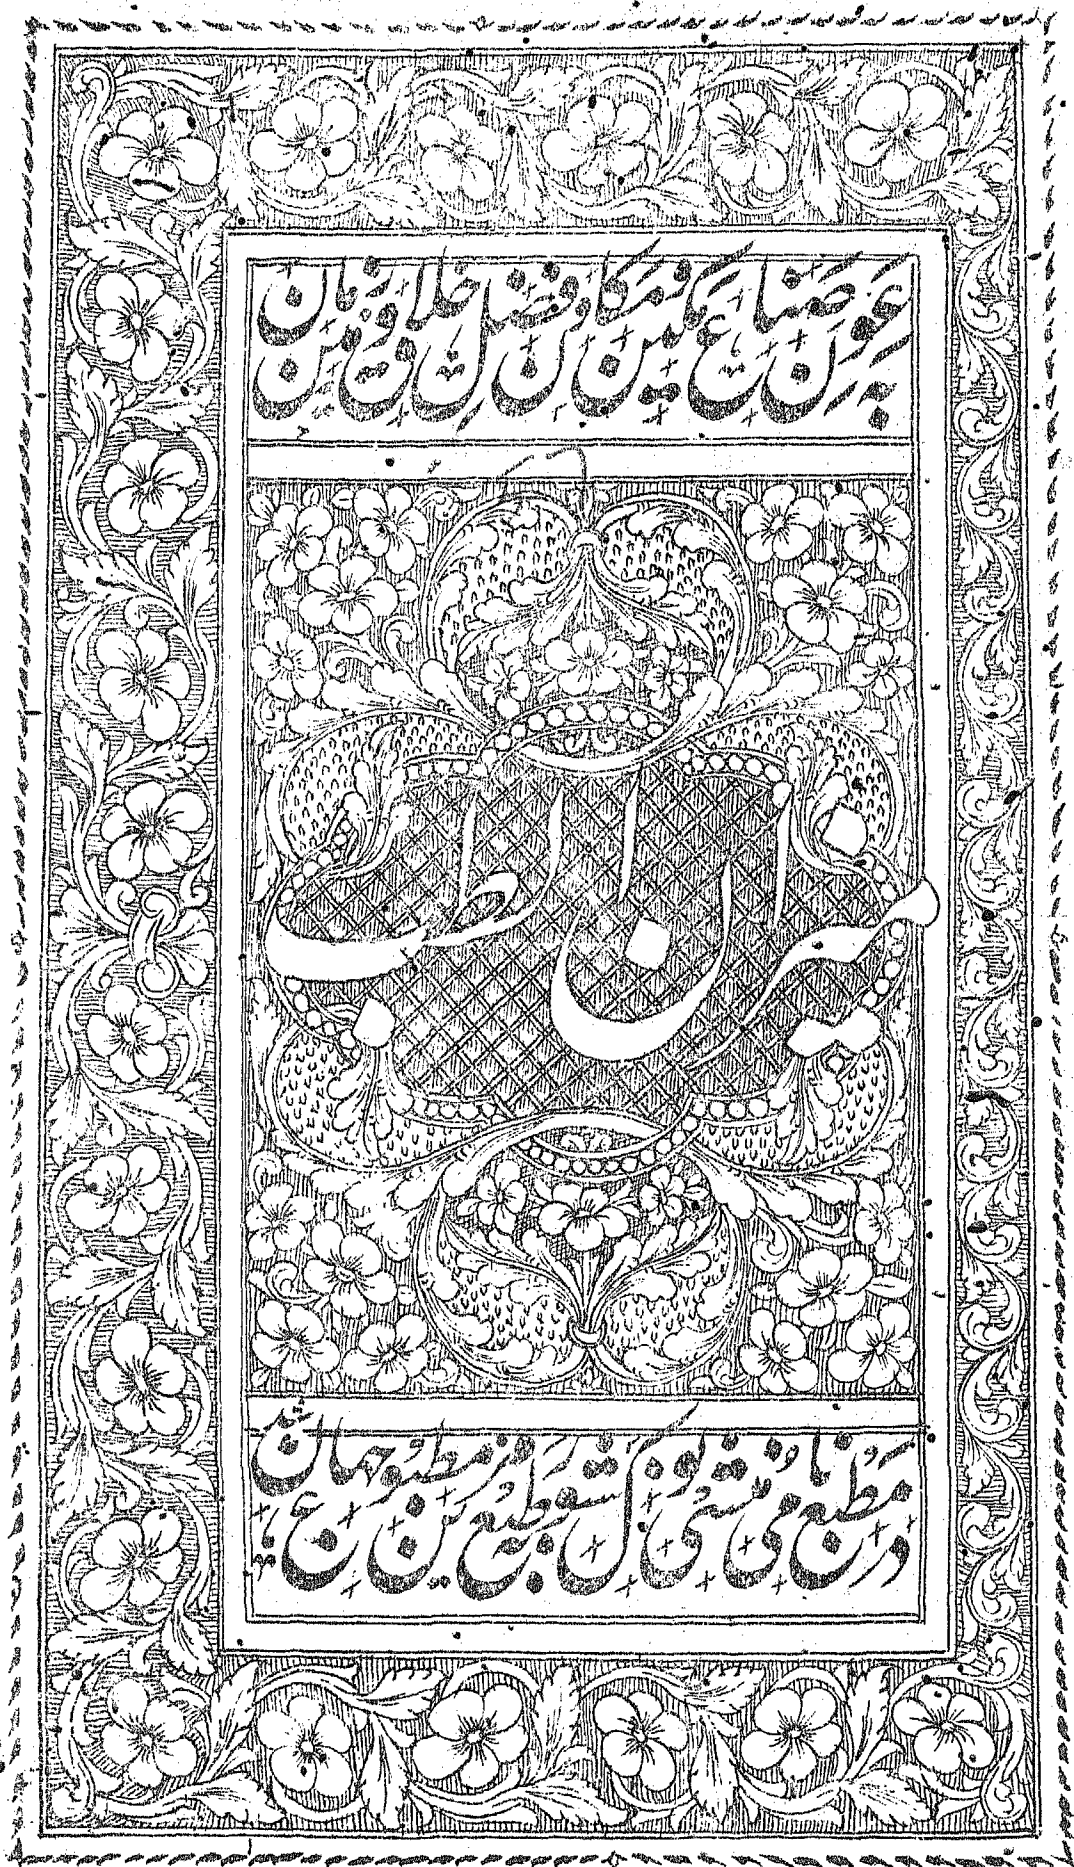 بعون صناع مکین و مکان و فضل خلاق زمین و زمان
میزان الطب
در مطبع نامی منشی نولکشور بطبع مزین مطبوع جهانیان شد